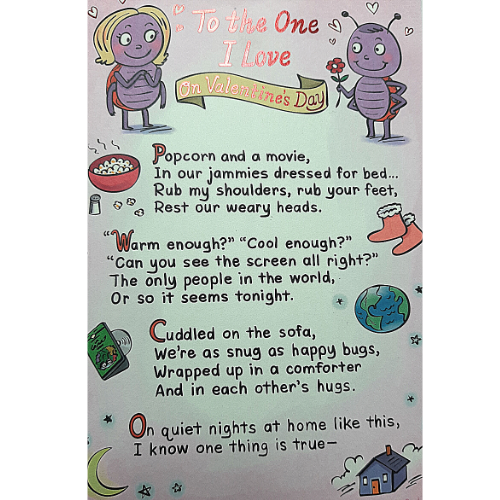 To the One
I Love
On Valentine's Day
Popcorn and a movie,
In our jammies dressed for bed...
Rub my shoulders, rub your feet,
Rest our weary heads.
"Warm enough?" "Cool enough?"
"Can you see the screen all right?"
The only people in the world,
Or so it seems tonight.
Cuddled on the sofa,
We're as snug as happy bugs,
Wrapped up in a comforter
And in each other's hugs.
On quiet nights at home like this,
I know one thing is true—